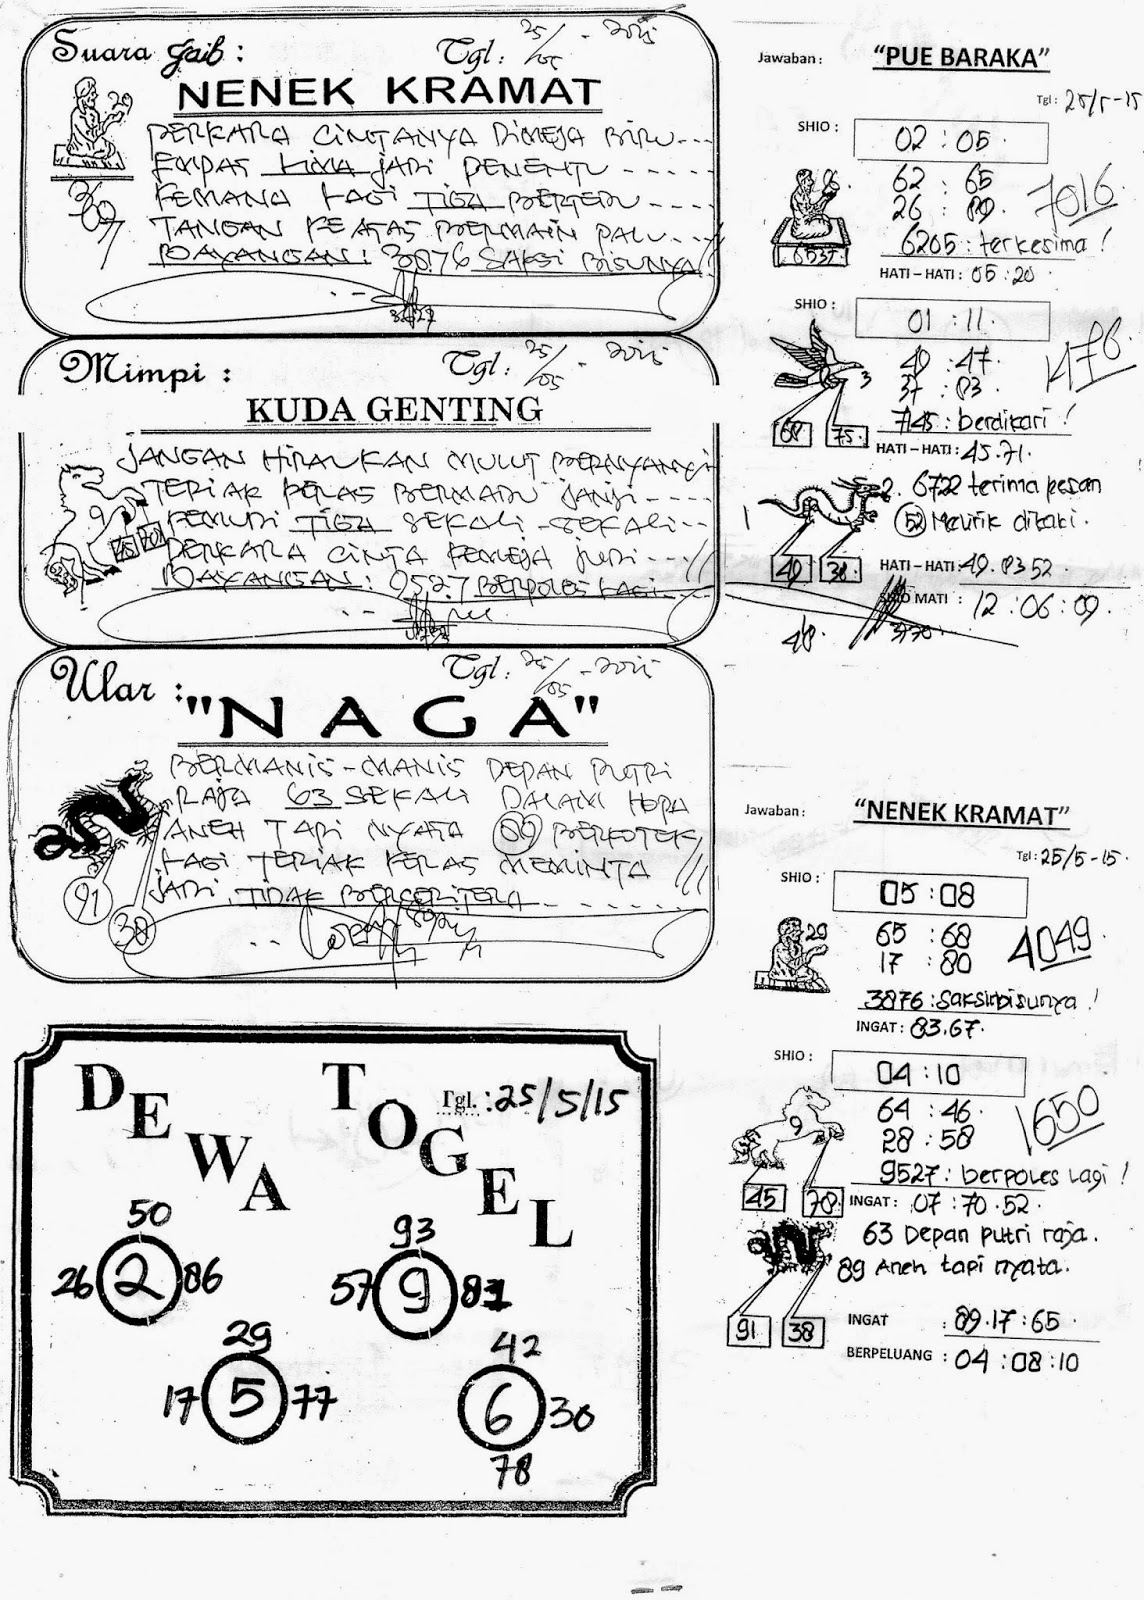 Suara Gaib :
Tgl : 25/05 - 2015
NENEK KRAMAT
PERKARA CINTANYA DIMEJA BIRU...
EMPAS LIMA JADI PENENTU ......
KEMANA LAGI TIGA BERTEDU ....
TANGAN KEATAS BERMAIN PALU...
BAYANGAN : 3876 SAKSI BISUNYA !!
Mimpi :
Tgl : 25/05 - 2015
KUDA GENTING
JANGAN HIRAUKAN MULUT BERNYANYI
TERIAK KERAS BERMADU JANJI ....
KEMUDI TIGA SEKALI - SEKALI ...
PERKARA CINTA KEMEJA JUDI ...
BAYANGAN : 9527 BERPOLES LAGI
9
45 70
Ular :
Tgl : 25/05 - 2015
"NAGA"
BERMANIS - MANIS DEPAN PUTRI
RAJA 63 SEKALI DALAM HOPA
ANEH TAPI NYATA 89 BERKOTEK
LAGI TERIAK KERAS MEMINTA !!!
JADI TIDAK BERCERITERA .......
91
38
DEWA TOGEL
Tgl. : 25/5/15
50
26 2 86
93
57 9
29
17 5 77
42
6 30
78
Jawaban : "PUE BARAKA"
Tgl : 25/5-15
SHIO : 02 : 05
62 : 65
26 : 89
7016
6537
6205 : terkesima !
HATI - HATI : 05 : 20
SHIO : 01 : 11
49 : 47
37 : 83
1476
3
68 75
7145 : berdikari !
HATI - HATI : 45.71.
2. 6722 terima pesan
52 Melirik dikaki.
1
49 38
HATI - HATI : 49. 83 52.
SHIO MATI : 12 : 06 : 09.
48.
Jawaban : "NENEK KRAMAT"
Tgl : 25/5-15.
SHIO : 05 : 08
65 : 68
17 : 80
4049
29
3876 : Saksi bisunya !
INGAT : 83.67.
SHIO : 04 : 10
64 : 46.
28 : 58
1650
9
9527 : berpoles lagi !
45 70
INGAT : 07 : 70.52.
63 Depan putri raja.
89 Aneh tapi nyata.
91 38
INGAT : 89.17 : 65
BERPELUANG : 04 : 08 : 10